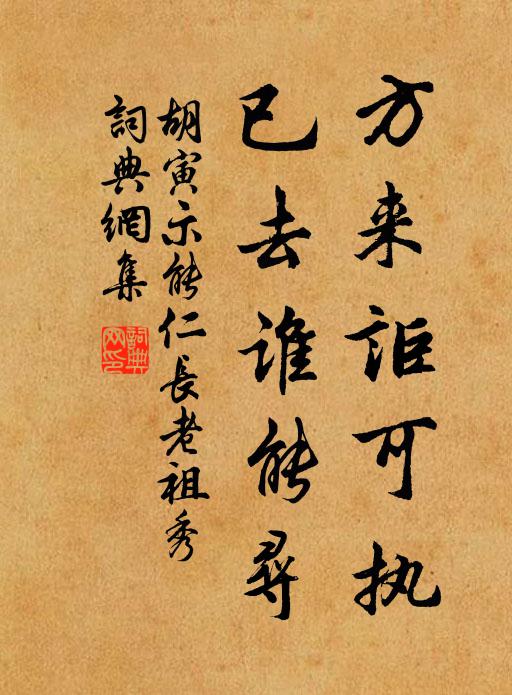 方来詎可执
已去谁能尋
胡寅示能仁長老祖秀
詞典網集
詞典
网印